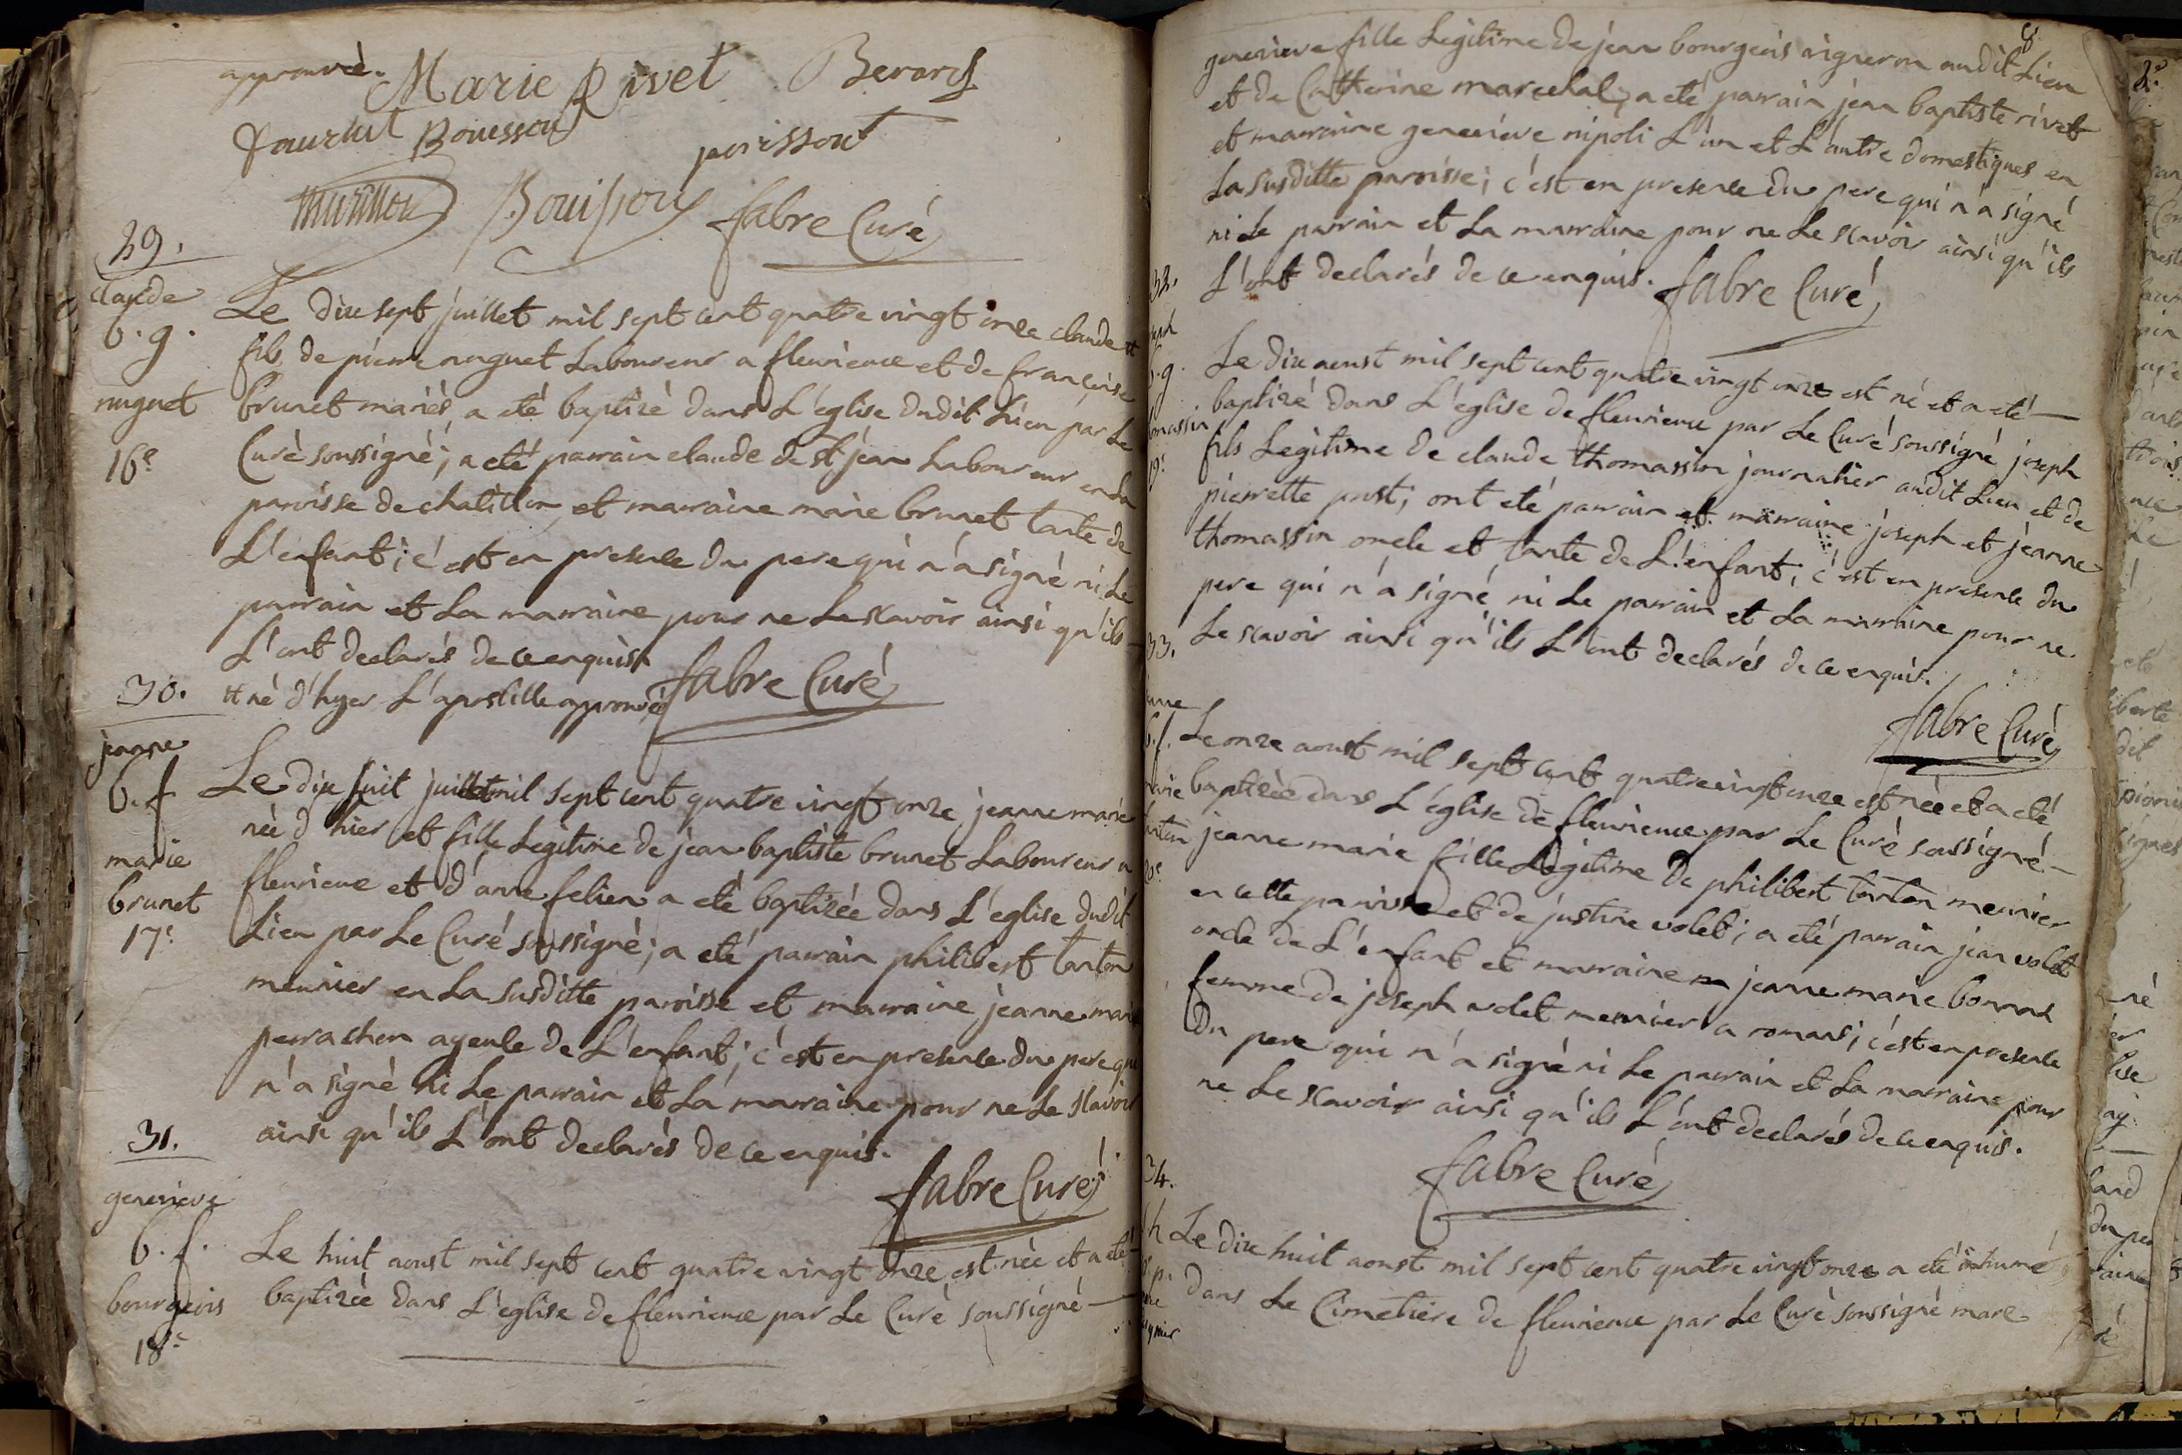 approuvé. Marie Rivet Berard
Bouesson
poisson
Bouisson fabre Curé
29.
claude
b. g.
nuguet
16e
Le dix sept juillet mil sept cent quatre vingt onze claude #
fils de pierre nuguet Laboureur a fleurieux et de françoise
brunet mariés, a eté baptizé dans L'eglise dudit Lieu par Le
Curé soussigné; a eté parrain claude de st jean Laboureur en La
paroisse de chatillon, et marraine marie brunet tante de
L'enfant; c'est en presence du pere qui n'a signé ni Le
parrain et La marraine pour ne Le scavoir ainsi qu'ils
L'ont declarés de ce enquis
# né d'hyer L'apostille approuvé fabre Curé
30.
jeanne
b. f
marie
brunet
17e
Le dix huit juillet mil sept cent quatre vingt onze jeanne marie
née d'hier et fille Legitime de jean baptiste brunet Laboureur a
fleurieux et d'anne felien a eté baptizée dans L'eglise dudit
Lieu par Le Curé soussigné; a eté parrain philibert tonton
meunier en La susditte paroisse et marraine jeanne marie
perrachon ayeule de L'enfant; c'est en presence du pere qui
n'a signé ni Le parrain et La marraine pour ne Le scavoir
ainsi qu'ils L'ont declarés de ce enquis.
fabre Curé
31.
genevieve
b. f.
bourgeois
18e
Le huit aoust mil sept cent quatre vingt onze est née et a eté
baptizée dans L'eglise de fleurieux par Le Curé soussigné
8.
genevieve fille Legitime de jean bourgeois vigneron audit Lieu
et de Catherine marechal; a eté parrain jean baptiste rivet
et marraine genevieve nipoli L'un et L'autre domestiques en
La susditte paroisse; c'est en presence du pere qui n'a signé
ni Le parrain et La marraine pour ne Le scavoir ainsi qu'ils
L'ont declarés de ce enquis. fabre Curé
32.
b. g.
19e
Le dix aoust mil sept cent quatre vingt onze est né et a eté
baptizé dans L'eglise de fleurieux par Le Curé soussigné joseph
fils Legitime de claude thomassin journalier audit Lieu et de
pierrette pust; ont eté parrain et marraine joseph et jeanne
thomassin oncle et tante de L'enfant; c'est en presence du
pere qui n'a signé ni Le parrain et La marraine pour ne
Le scavoir ainsi qu'ils L'ont declarés de ce enquis.
fabre Curé
33.
b. f.
Le onze aoust mil sept cent quatre vingt onze est née et a eté
baptizée dans L'eglise de fleurieux par Le Curé soussigné
jeanne marie fille Legitime de philibert tonton meunier
en cette paroisse et de justine volet; a eté parrain jean volet
oncle de L'enfant et marraine jeanne marie bonnat
femme de joseph volet meunier a romans; c'est en presence
du pere qui n'a signé ni Le parrain et La marraine pour
ne Le scavoir ainsi qu'ils L'ont declarés de ce enquis.
fabre Curé
34.
Le dix huit aoust mil sept cent quatre vingt onze a eté inhumé
dans Le Cimetiere de fleurieux par Le Curé soussigné marc